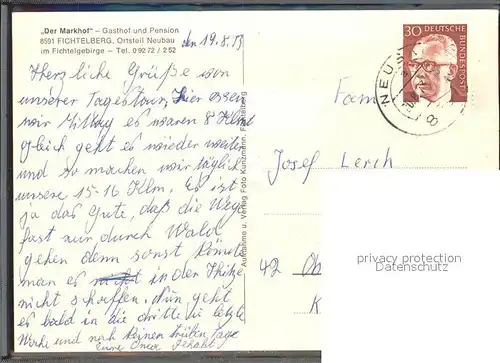 „Der Markhof“ – Gasthof und Pension
8591 FICHTELBERG, Ortsteil Neubau
im Fichtelgebirge – Tel. 0 92 72 / 2 52
den 19.8.73
Herzliche Grüße von
unserer Tagestour, hier essen
wir Mittag es waren 8 Klm
gleich geht es wieder weiter
und so machen wir täglich
unsere 15-16 Klm. Es ist
ja das Gute, daß die Wege
fast nur durch Wald
gehen denn sonst könnte
man es in der Hitze
nicht schaffen. Nun geht
es bald in die dritte u. letzte
Woche und nach keinen trüben Tage
Eure
Aufnahme u. Verlag Foto Kunzmann, Fichtelberg
30
DEUTSCHE BUNDESPOST
NEUS
Fam
Josef Lerch
42 Ob
K
privacy protection
Datenschutz